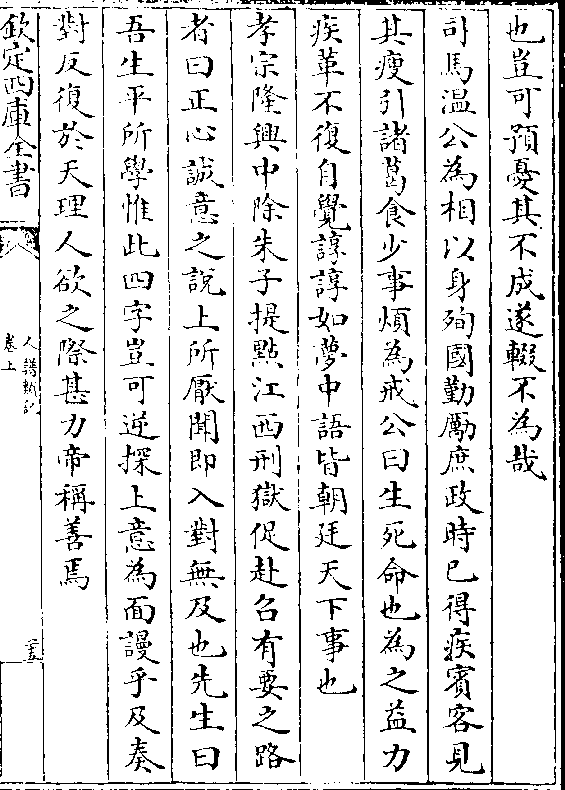 也豈可預憂其不成遂輟不為哉
司馬溫公為相以身殉國勤勵庶政時已得疾賓客見
其瘦引諸葛食少事煩為戒公曰生死命也為之益力
疾革不復自覺諄諄如夢中語皆朝廷天下事也
孝宗隆興中除朱子提點江西刑獄促赴召有要之路
者曰正心誠意之說上所厭聞即入對無及也先生曰
吾生平所學惟此四字豈可逆探上意為面謾乎及奏
對反復於天理人欲之際甚力帝稱善焉
欽定四庫全書
人譜類記
卷上